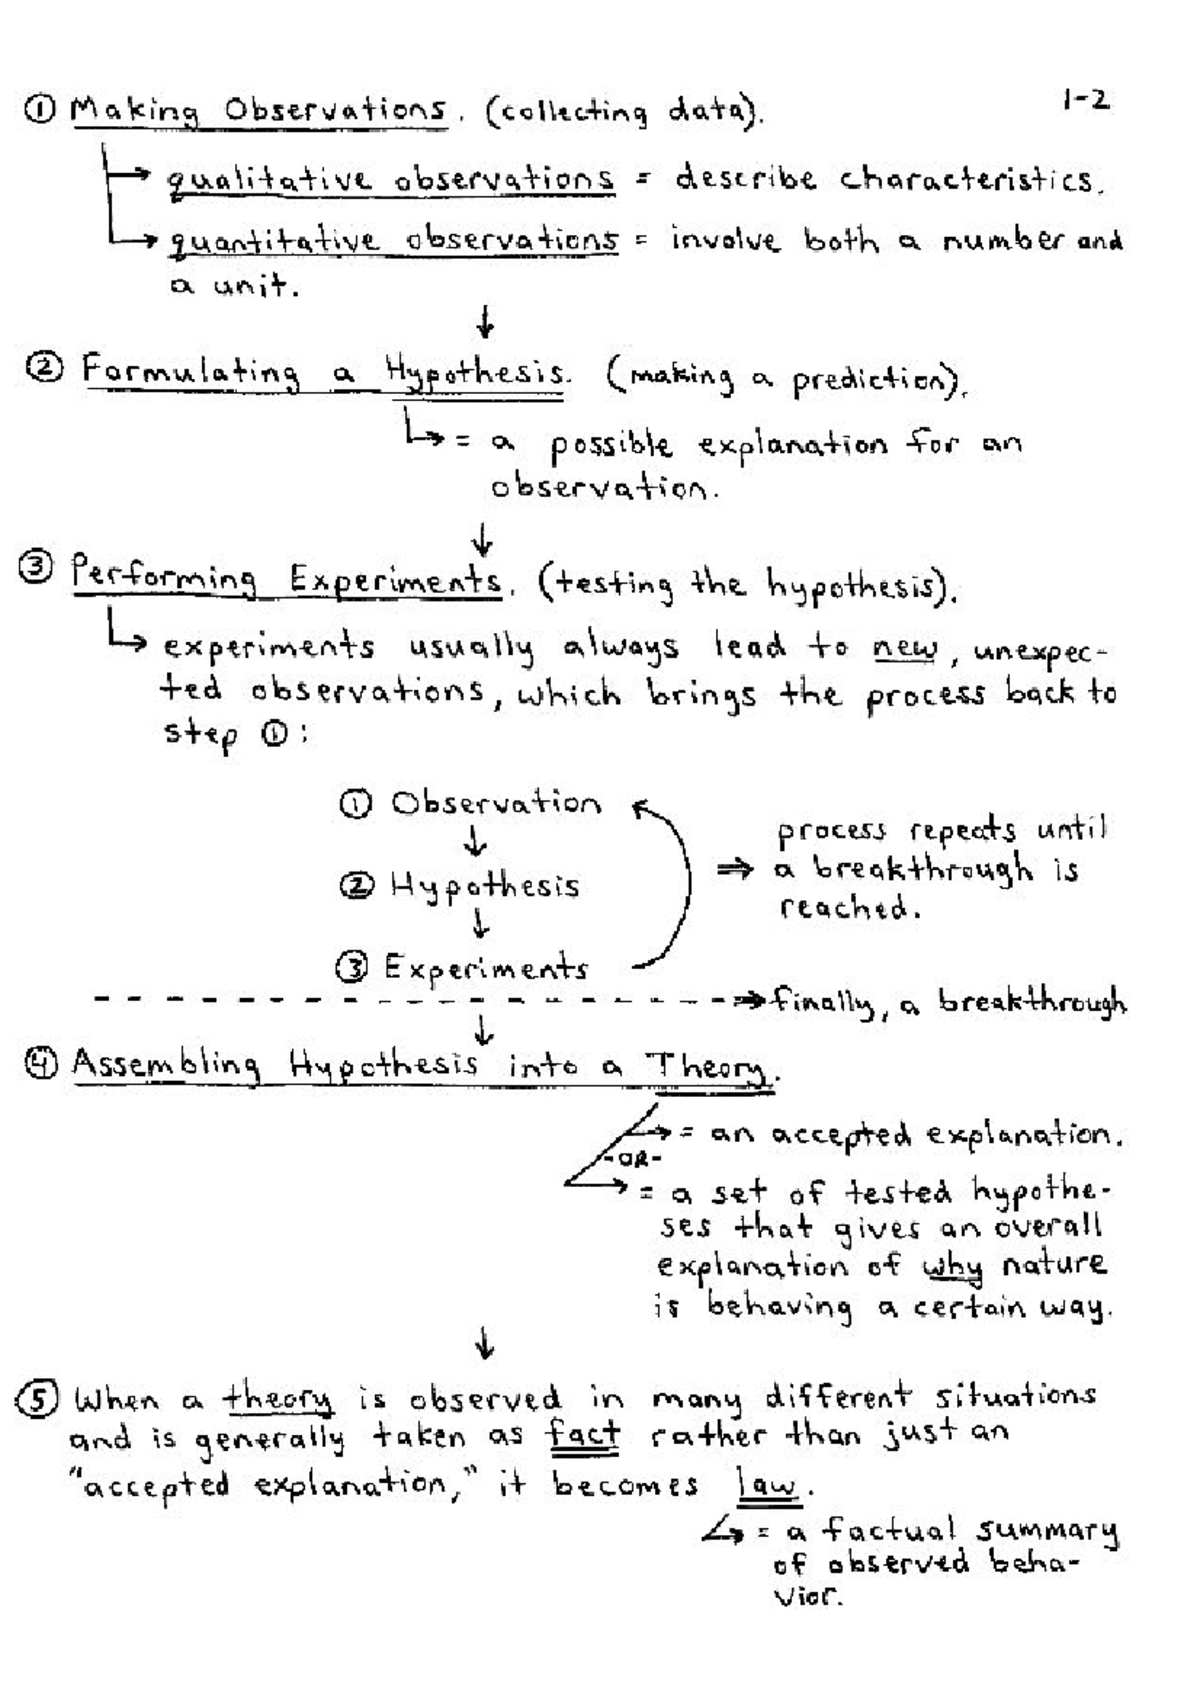 ① Making Observations. (collecting data). 1-2
→ qualitative observations = describe characteristics.
→ quantitative observations = involve both a number and
a unit.
↓
② Formulating a Hypothesis. (making a prediction).
→ = a possible explanation for an
observation.
↓
③ Performing Experiments. (testing the hypothesis).
→ experiments usually always lead to new, unexpec-
ted observations, which brings the process back to
step ①:
① Observation
↓
② Hypothesis
↓
③ Experiments
process repeats until
⇒ a breakthrough is
reached.
⇒ finally, a breakthrough
↓
④ Assembling Hypothesis into a Theory.
→ = an accepted explanation.
-OR-
→ = a set of tested hypothe-
ses that gives an overall
explanation of why nature
is behaving a certain way.
↓
⑤ When a theory is observed in many different situations
and is generally taken as fact rather than just an
"accepted explanation," it becomes law.
↳ = a factual summary
of observed beha-
vior.